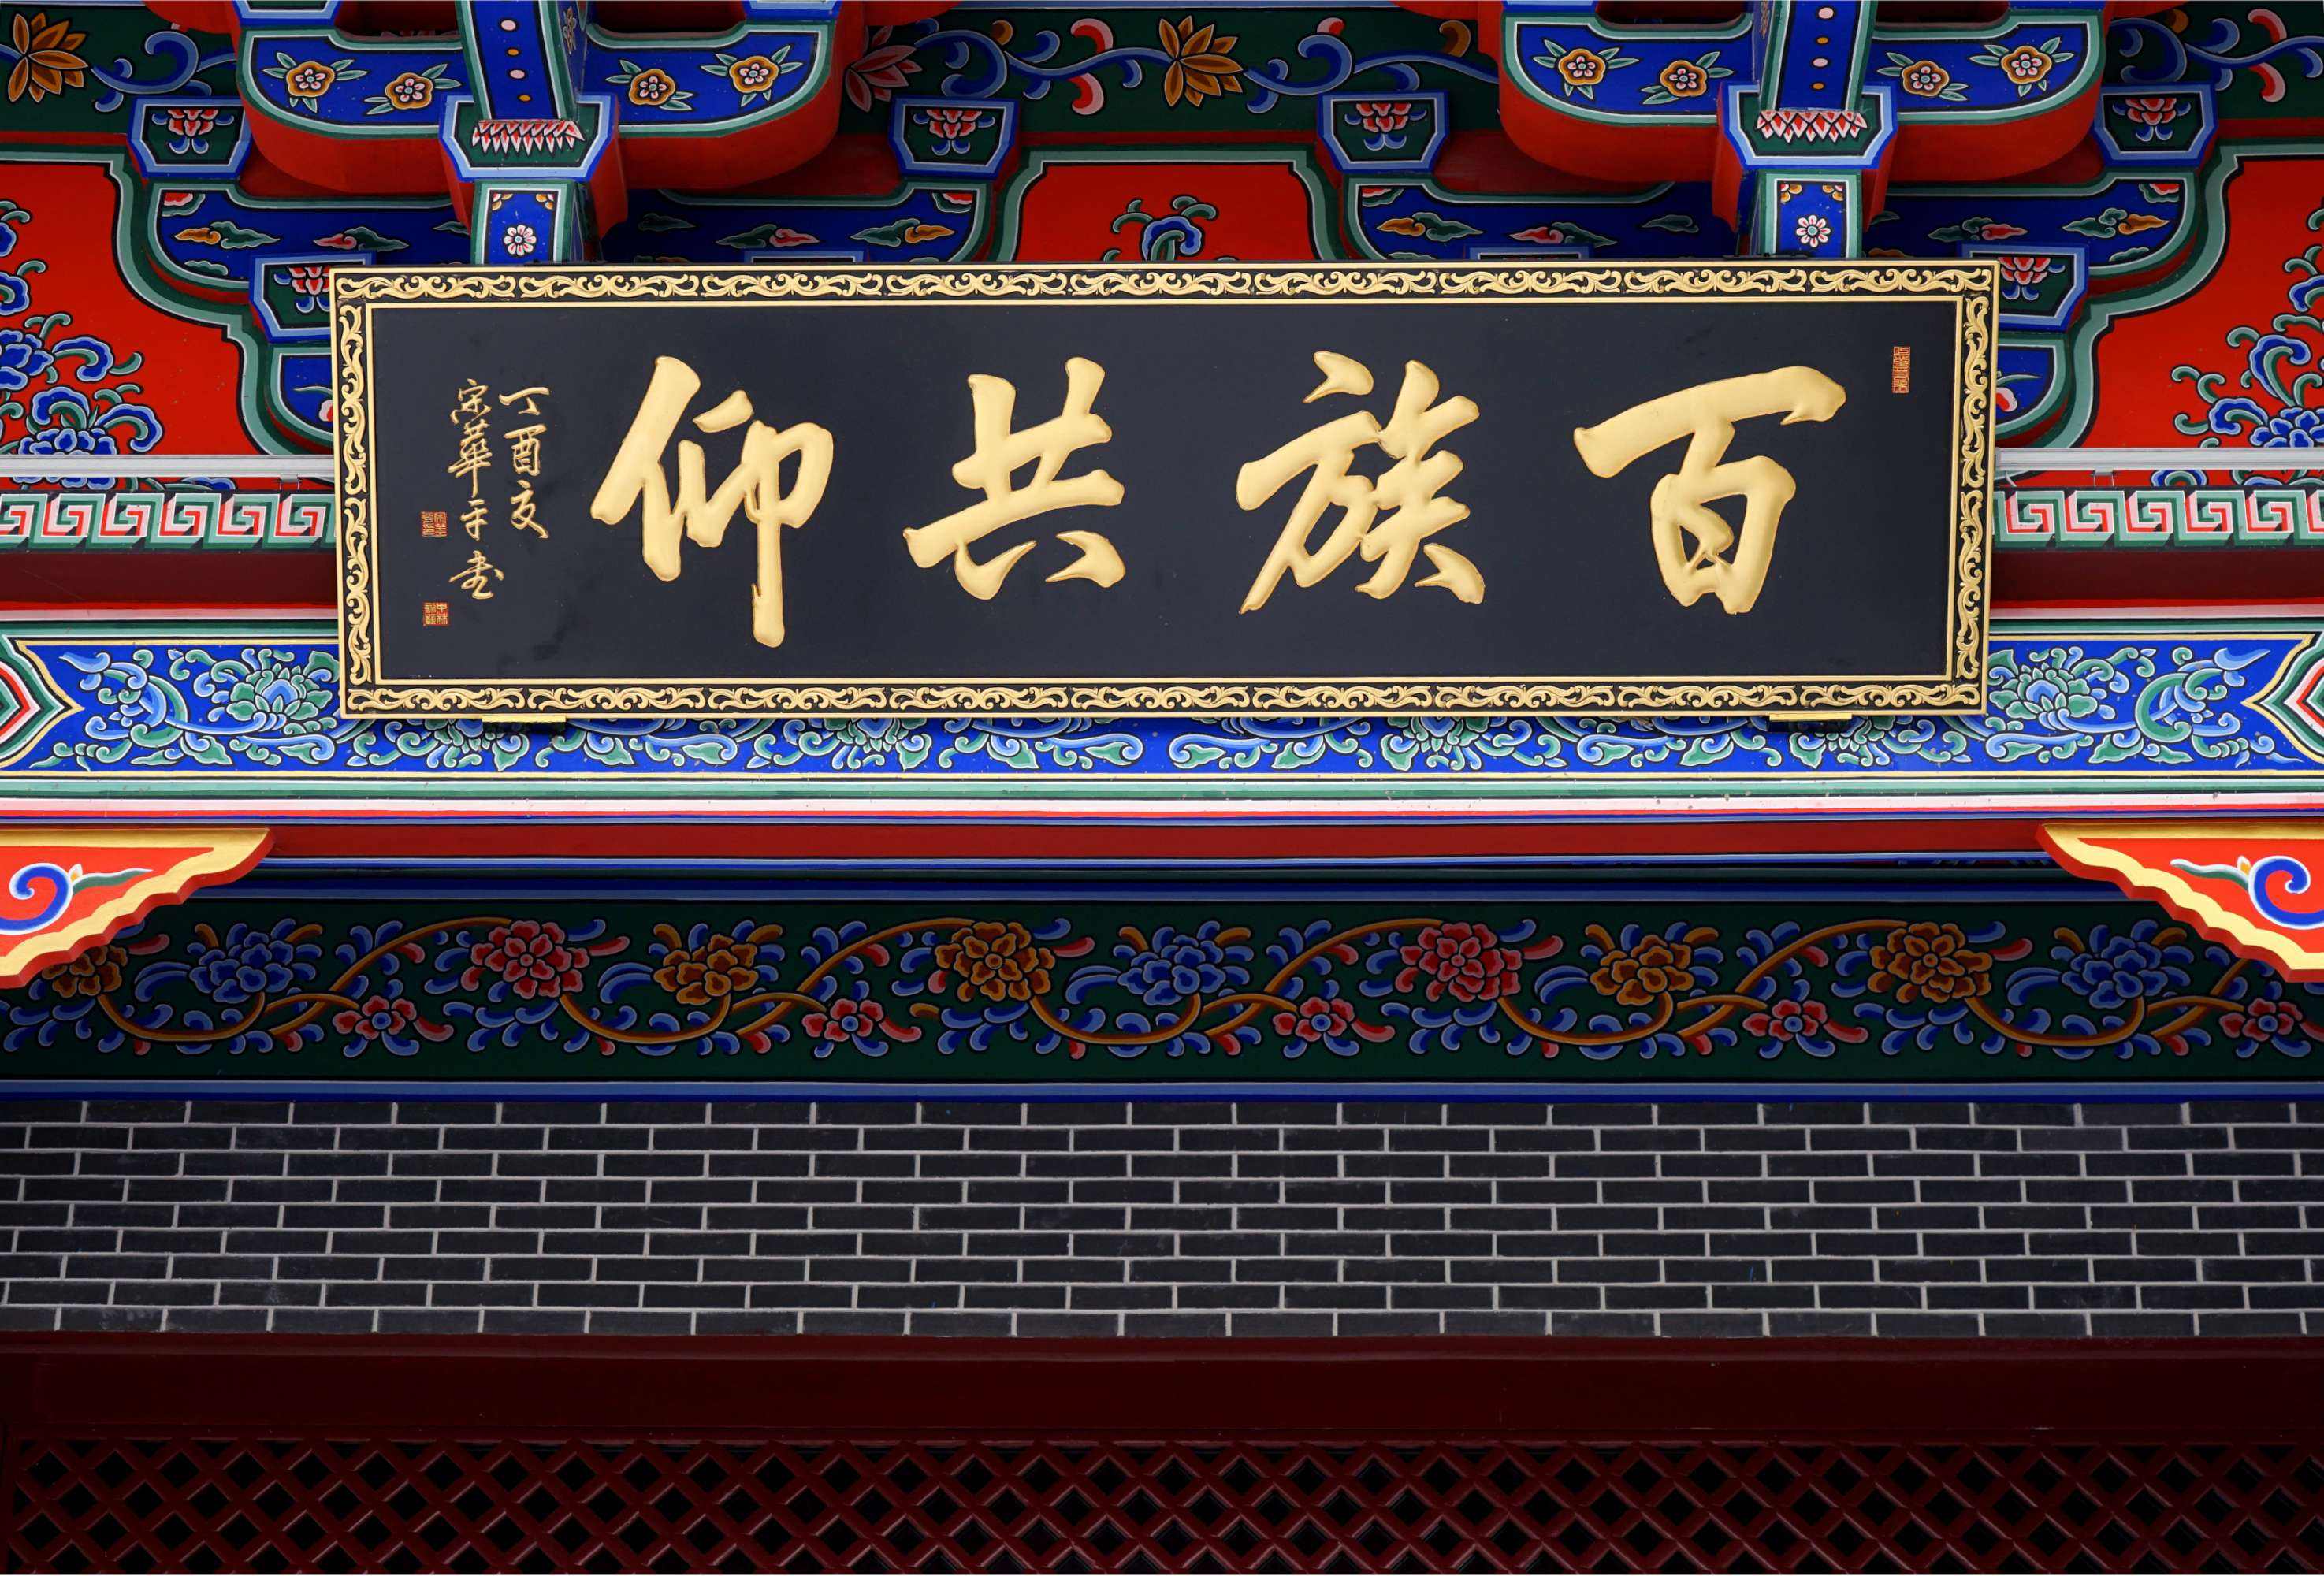 百族共仰
丁酉夏
宗華平书